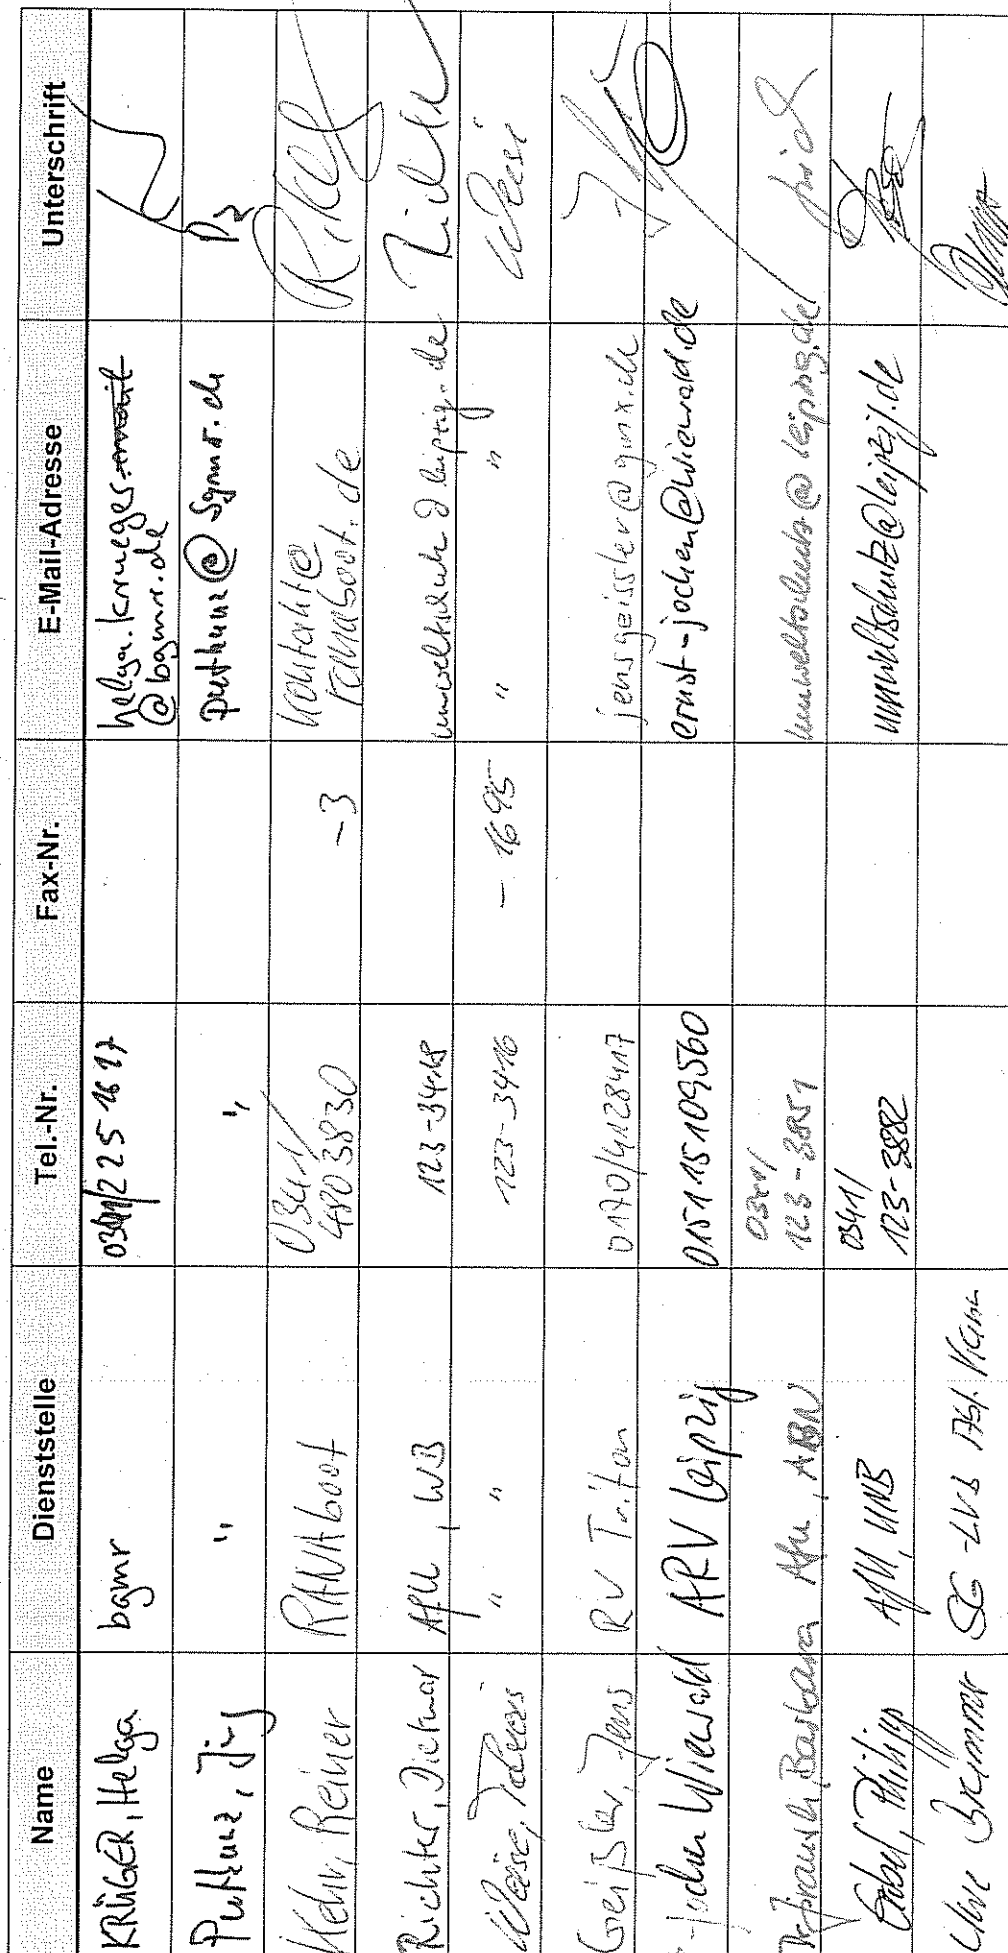 Name Dienststelle Tel.-Nr. Fax-Nr. E-Mail-Adresse Unterschrift
KRÜGER, Helga bgmr 0341/225 16 17 helga.krueger
@bgmr.de
Puttkunz, Jörg " "
Reiner RANAboot 0341/
480 3830 -3 kontakt@
ranaboot.de
Richter, Dietmar AfU, WB 123-3418 umweltschutz@leipzig.de Richter
Weise, " " 123-3416 - 1695 " " Weise
Geißler, Jens RV Triton 0170/4128417 jensgeissler@gmx.de
-Jochen Wiewald ARV Leipzig 0151 15109560 ernst-jochen@wiewald.de
Barbara Afu, ABN 0341/
123-3851 umweltschutz@leipzig.de
Philipp AfU, UNB 0341/
123-3882 umweltschutz@leipzig.de
Uwe Brimmer SG-LVB